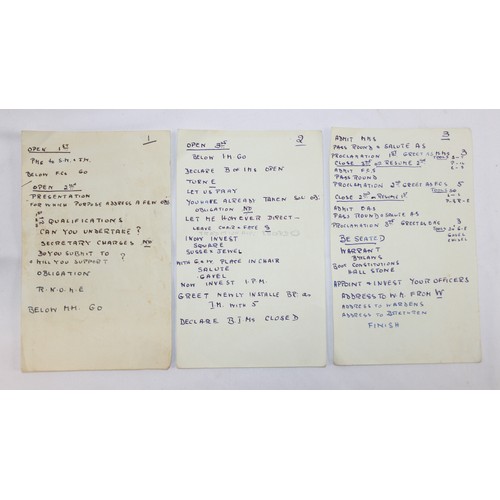 1
OPEN 1st
BELOW F.Cs GO
OPEN 2nd
PRESENTATION
FOR WHICH PURPOSE ADDRESS A FEW OBS
QUALIFICATIONS
CAN YOU UNDERTAKE?
SECRETARY CHARGES NO
DO YOU SUBMIT TO ?
+ WILL YOU SUPPORT
OBLIGATION
R.N.O.M.E
BELOW MM. GO
2
OPEN 3rd
BELOW I.M. GO
DECLARE B OF IMs OPEN
TURN E
LET US PRAY
YOU HAVE ALREADY TAKEN SOL OB.
OBLIGATION NO
LET ME HOWEVER DIRECT—
LEAVE CHAIR + FACE S
NOW INVEST
SQUARE
SUSSEX JEWEL
WITH G & W. PLACE IN CHAIR
SALUTE
GAVEL
NOW INVEST I.P.M.
GREET NEWLY INSTALLED BR. AS
I.M. WITH 5
DECLARE B.IMs CLOSED
3
ADMIT MMS
PASS ROUND + SALUTE AS
PROCLAMATION 1st GREET AS MMS 3
CLOSE 3rd OR RESUME 2nd
ADMIT F.C.S
PASS ROUND
PROCLAMATION 2nd GREET AS FCS 5
CLOSE 2nd OR RESUME 1st
ADMIT E.A.S
PASS ROUND + SALUTE AS
PROCLAMATION 3rd GREET AS EAS 3
BE SEATED
WARRANT
BYLAWS
BOOK CONSTITUTIONS
HALL STONE
APPOINT & INVEST YOUR OFFICERS
ADDRESS TO W.M. FROM W
ADDRESS TO WARDENS
ADDRESS TO BRETHREN
FINISH